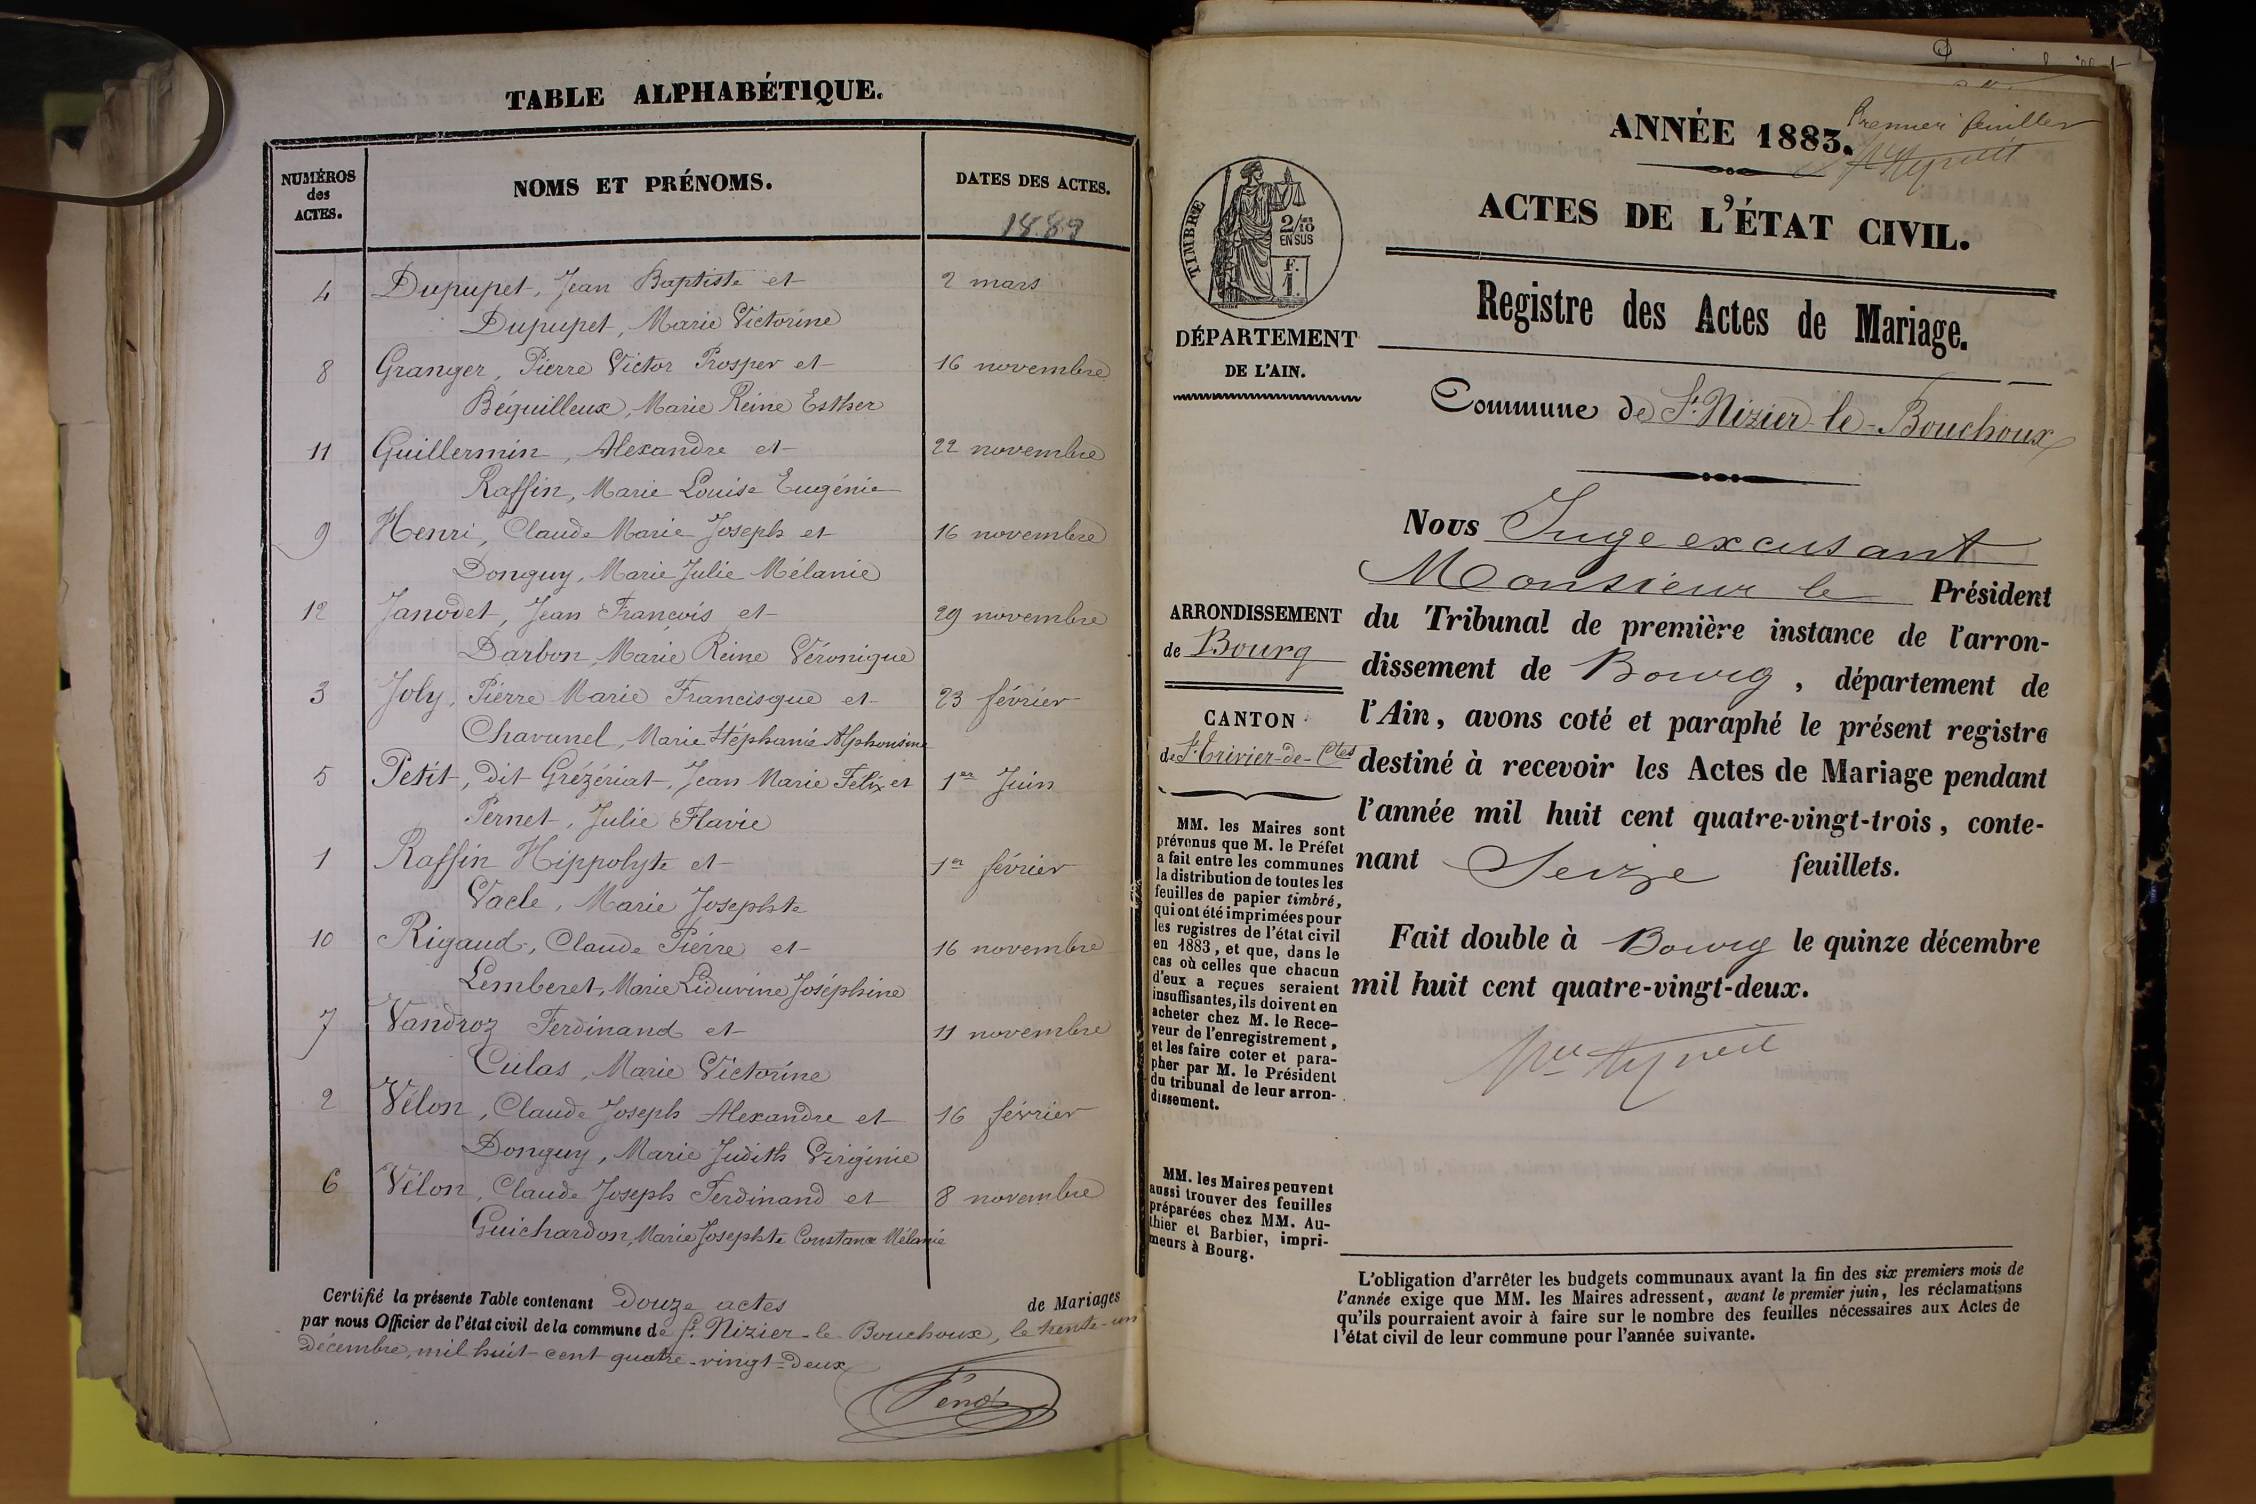 TABLE ALPHABÉTIQUE.
NUMÉROS
des
ACTES.
NOMS ET PRÉNOMS.
DATES DES ACTES.
4 Dupupet, Jean Baptiste et 2 mars
Dupupet, Marie Victorine
8 Granger, Pierre Victor Prosper et 16 novembre
Béguilleux, Marie Reine Esther
11 Guillermin, Alexandre et 22 novembre
Raffin, Marie Louise Eugénie
9 Henri, Claude Marie Joseph et 16 novembre
Donguy, Marie Julie Mélanie
12 Janodet, Jean François et 29 novembre
Darbon, Marie Reine Véronique
3 Joly, Pierre Marie Francisque et 23 février
Chavanel, Marie Stéphanie Alphonsine
5 Petit, dit Grézériat, Jean Marie Félix et 1er Juin
Pernet, Julie Flavie
1 Raffin Hippolyte et 1er février
Vacle, Marie Josephte
10 Rigaud, Claude Pierre et 16 novembre
Lemberet, Marie Liduvine Joséphine
7 Vandroz Ferdinand et 11 novembre
Culas, Marie Victorine
2 Vélon, Claude Joseph Alexandre et 16 février
Donguy, Marie Judith Virginie
6 Vélon, Claude Joseph Ferdinand et 8 novembre
Guichardon, Marie Josephte Constance Mélanie
Certifié la présente Table contenant Douze actes de Mariages
par nous Officier de l'état civil de la commune de St Nizier-le-Bouchoux, le trente-un
Décembre, mil huit-cent quatre-vingt-deux
ANNÉE 1883.
Premier feuillet
ACTES DE L'ÉTAT CIVIL.
TIMBRE
2/10
EN SUS
F.
1.
Registre des Actes de Mariage.
DÉPARTEMENT
DE L'AIN.
Commune de St Nizier-le-Bouchoux
Nous Juge excusant
Monsieur le Président
du Tribunal de première instance de l'arron-
dissement de Bourg, département de
l'Ain, avons coté et paraphé le présent registre
destiné à recevoir les Actes de Mariage pendant
l'année mil huit cent quatre-vingt-trois, conte-
nant Seize feuillets.
Fait double à Bourg le quinze décembre
mil huit cent quatre-vingt-deux.
ARRONDISSEMENT
de Bourg
CANTON
de St Trivier-de-Ctes
MM. les Maires sont
prévenus que M. le Préfet
a fait entre les communes
la distribution de toutes les
feuilles de papier timbré,
qui ont été imprimées pour
les registres de l'état civil
en 1883, et que, dans le
cas où celles que chacun
d'eux a reçues seraient
insuffisantes, ils doivent en
acheter chez M. le Rece-
veur de l'enregistrement,
et les faire coter et para-
pher par M. le Président
du tribunal de leur arron-
dissement.
MM. les Maires peuvent
aussi trouver des feuilles
préparées chez MM. Au-
thier et Barbier, impri-
meurs à Bourg.
L'obligation d'arrêter les budgets communaux avant la fin des six premiers mois de
l'année exige que MM. les Maires adressent, avant le premier juin, les réclamations
qu'ils pourraient avoir à faire sur le nombre des feuilles nécessaires aux Actes de
l'état civil de leur commune pour l'année suivante.